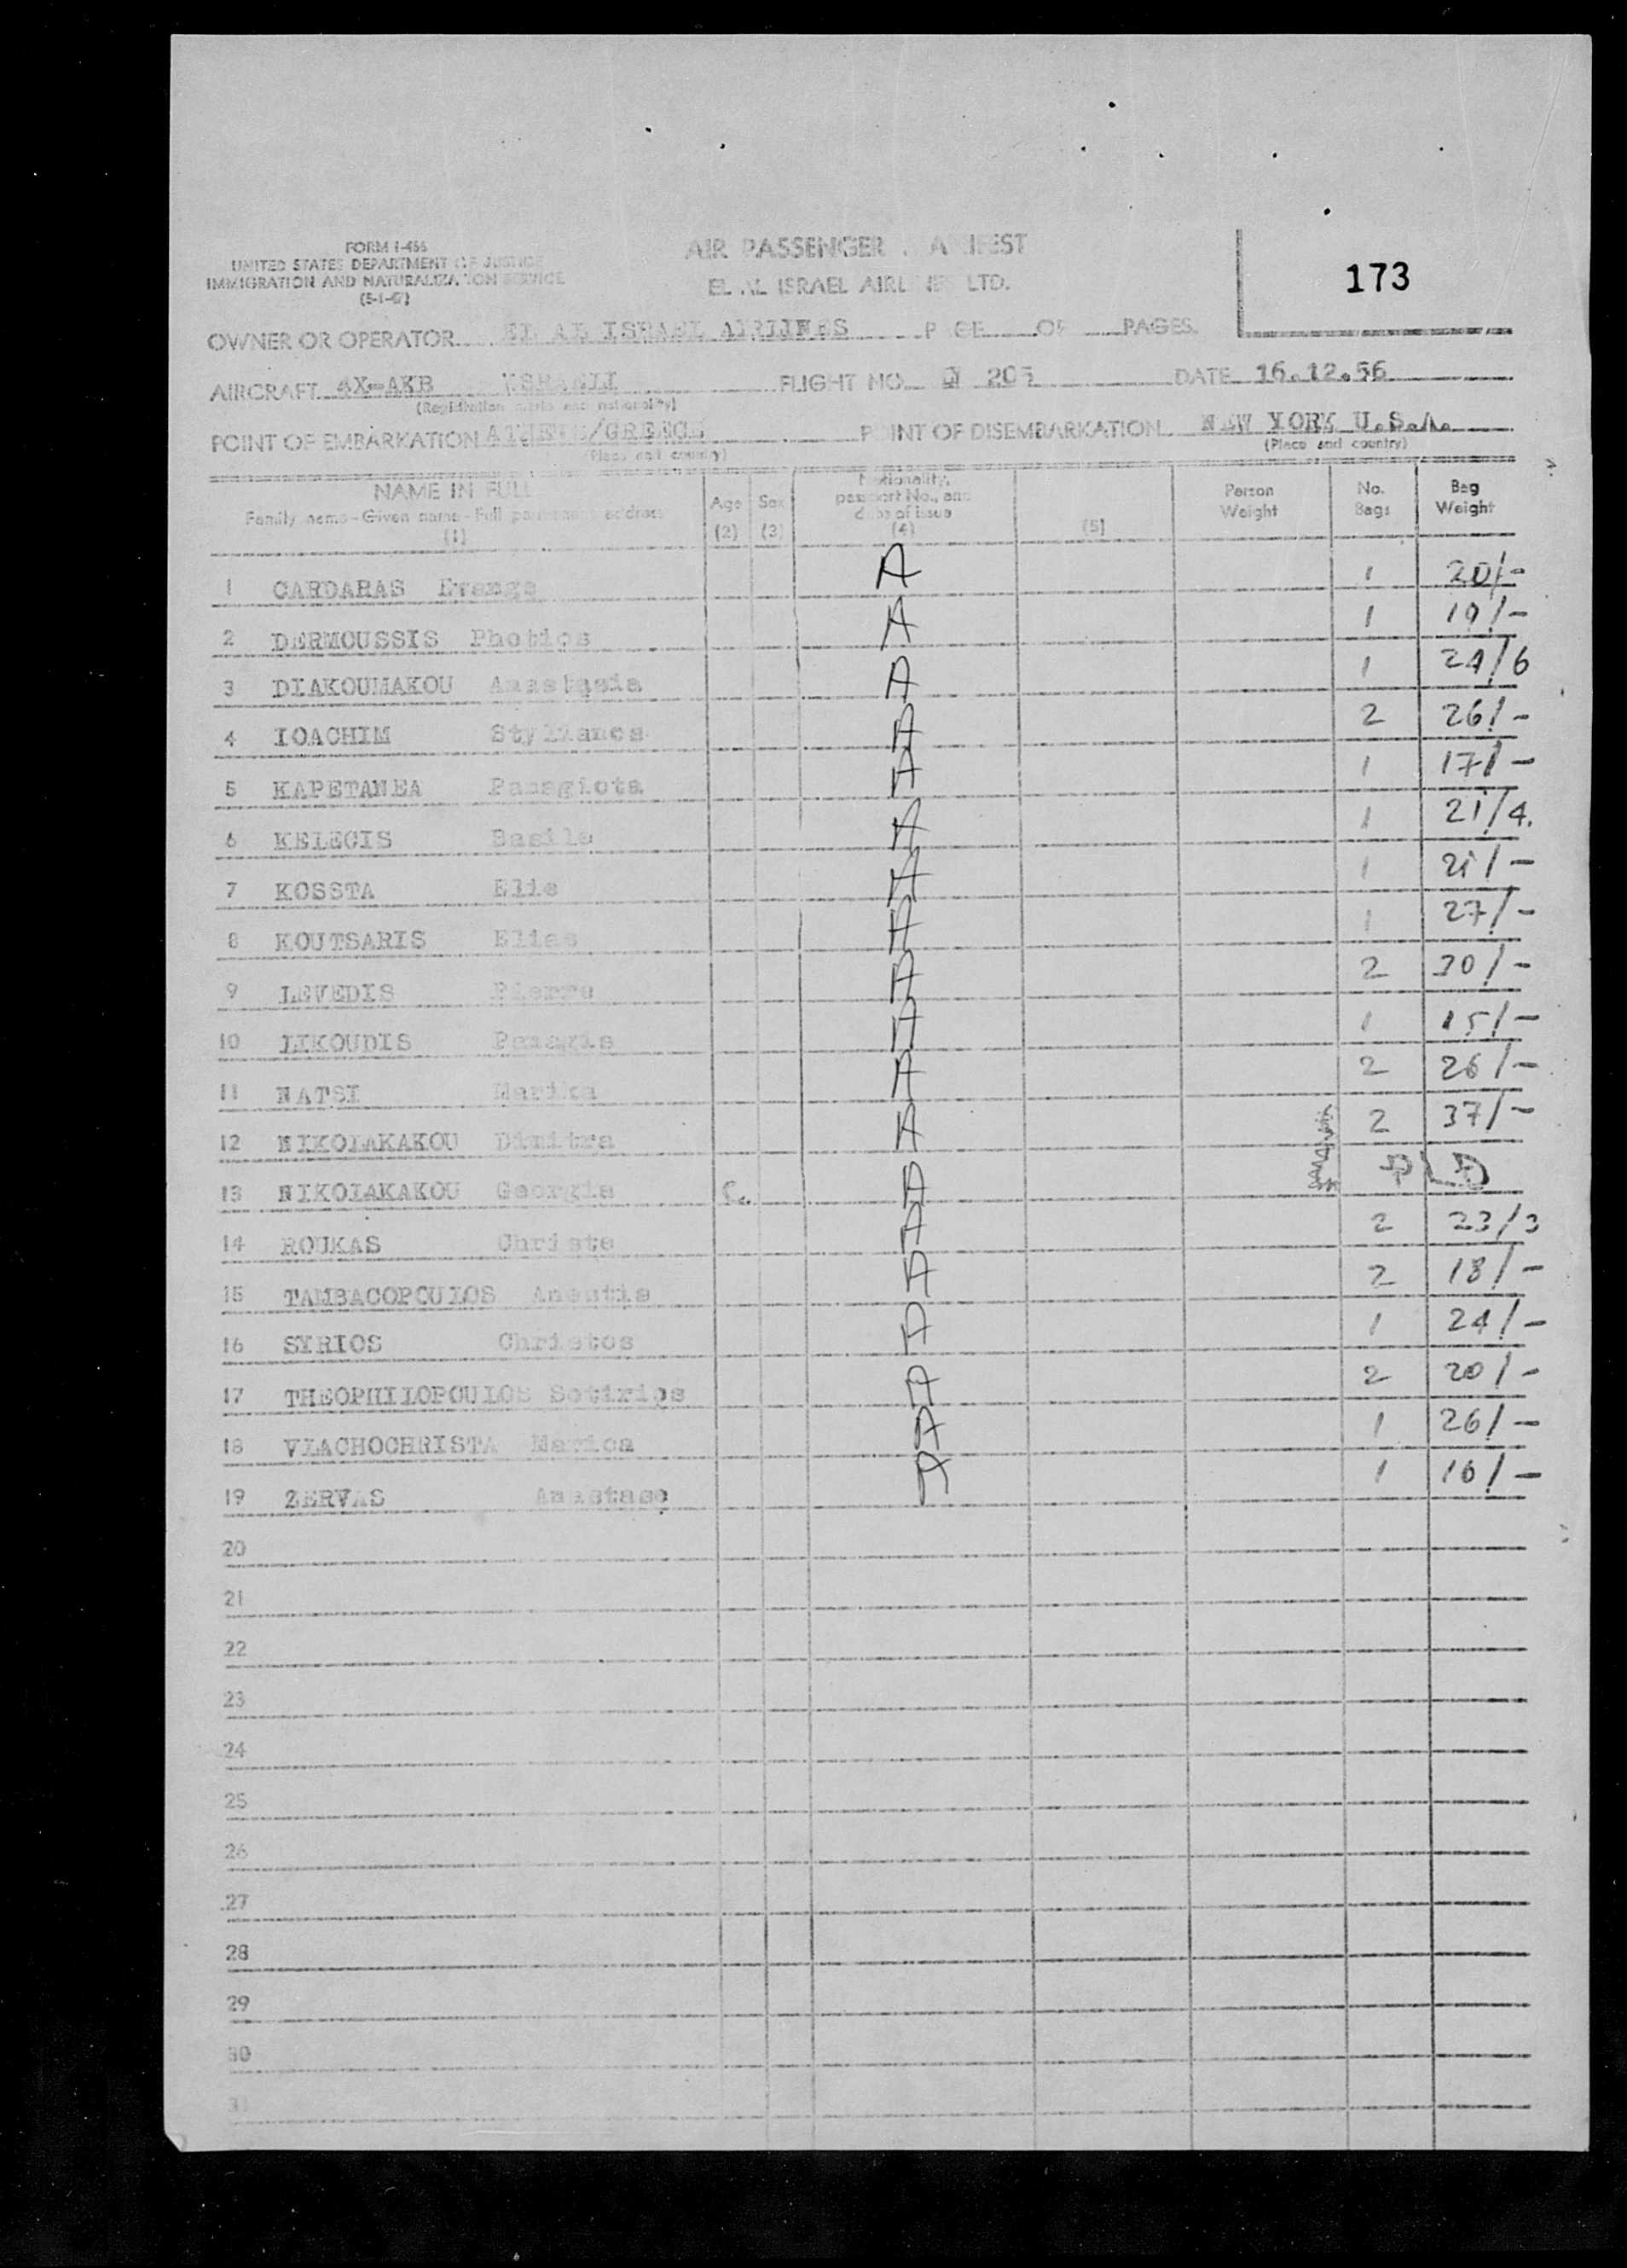 FORM I-466
UNITED STATES DEPARTMENT OF JUSTICE
IMMIGRATION AND NATURALIZATION SERVICE
AIR PASSENGER MANIFEST
EL AL ISRAEL AIRLINES LTD.
173
OWNER OR OPERATOR EL AL ISRAEL AIRLINES PAGE OF PAGES
AIRCRAFT 4X-AKB ISRAELI FLIGHT NO. DATE 16.12.56
(Registration marks and nationality)
POINT OF EMBARKATION ATHENS/GREECE POINT OF DISEMBARKATION NEW YORK U.S.A.
(Place and country) (Place and country)
NAME IN FULL Age Sex Nationality, passport No., and date of issue Person Weight No. Bags Bag Weight
Family name - Given name - Full permanent address
(1) (2) (3) (4) (5)
1 CARDARAS A 1 20/-
2 DERMOUSSIS Photios A 1 19/-
3 DIAKOUMAKOU Anastasia A 1 24/6
4 IOACHIM Stylianos A 2 26/-
5 KAPETANEA Panagiota A 1 17/-
6 KELECIS Basile A 1 21/4.
7 KOSSTA Elie A 1 21/-
8 KOUTSARIS Elias A 1 27/-
9 LEVEDIS Pierre A 2 30/-
10 LIKOUDIS Panagis A 1 15/-
11 NATSI Marika A 2 26/-
12 NIKOLAKAKOU Dimitra A 2 37/-
13 NIKOLAKAKOU Georgia A
14 ROUKAS Christo A 2 23/3
15 TAMBACOPOULOS Anestis A 2 18/-
16 SYRIOS Christos A 1 24/-
17 THEOPHILOPOULOS Sotirios A 2 20/-
18 VLACHOCHRISTA Marica A 1 26/-
19 ZERVAS Anastase A 1 16/-
20
21
22
23
24
25
26
27
28
29
30
31